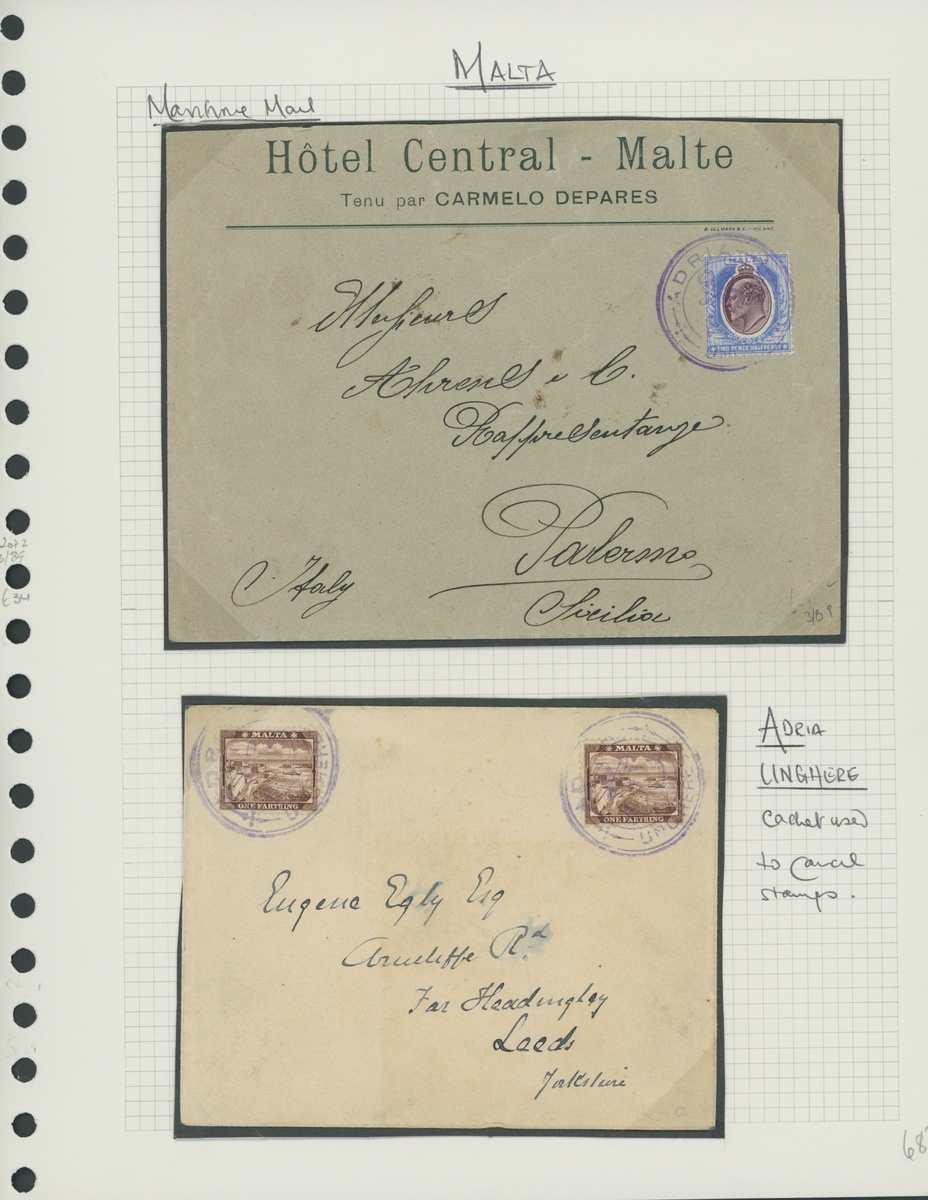 MALTA
Maritime Mail
Hôtel Central - Malte
Tenu par CARMELO DEPARES
ADRIA
MALTA
TWO PENCE HALFPENNY
Messieurs
Ahrens e C.
Rappresentanze
Palermo
Italy
Sicilia
3/01
£34
MALTA
ONE FARTHING
MALTA
ONE FARTHING
UNGHERE
Eugene Egly Esq
Arncliffe Rd
Far Headingley
Leeds
Yorkshire
ADRIA
UNGHERE
cachet used
to cancel
stamps.
68